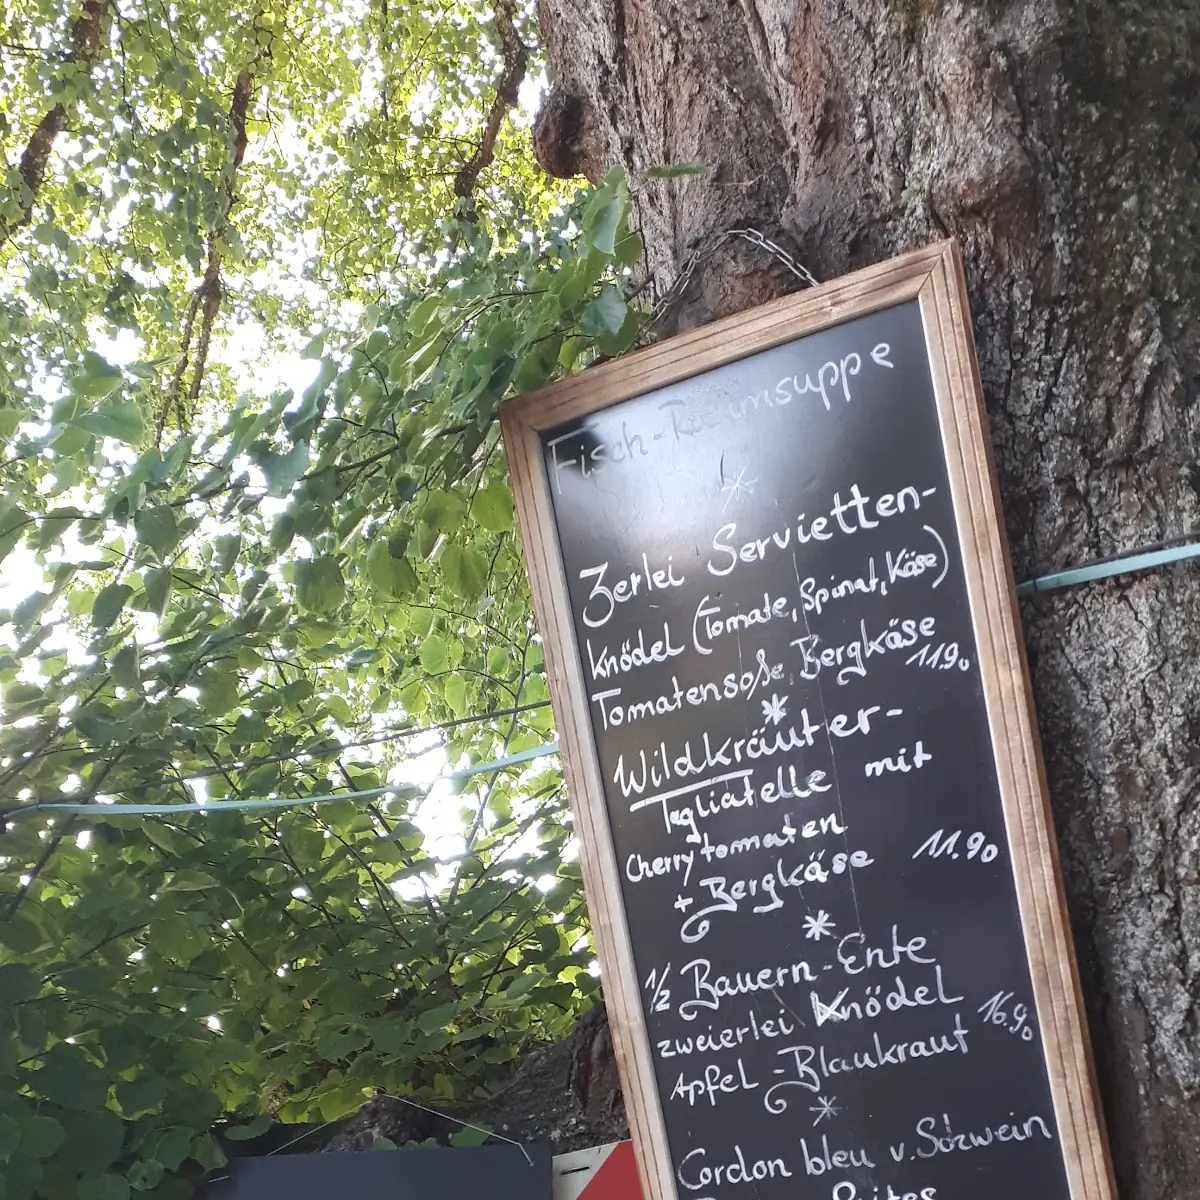 Fisch-Rahmsuppe
*
3erlei Servietten-
knödel (Tomate, Spinat, Käse)
Tomatensoße, Bergkäse
11.90
*
Wildkräuter-
Tagliatelle mit
Cherrytomaten
+ Bergkäse 11.90
*
1/2 Bauern-Ente
zweierlei Knödel
Apfel-Blaukraut 16.90
*
Cordon bleu v. Schwein